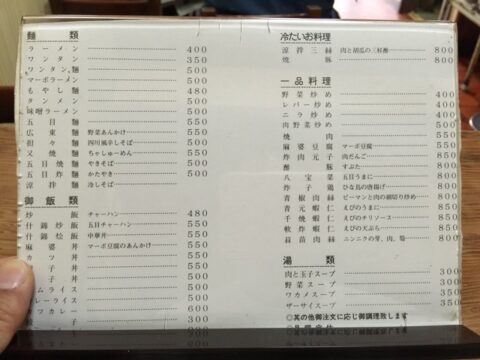 麺類
ラーメン 400
ワンタン 350
ワンタン麺 500
マーボラーメン 500
もやし麺 480
タンメン 500
味噌ラーメン 500
五目麺 550
広東麺 野菜あんかけ 550
担々麺 四川風辛しそば 550
叉焼麺 ちゃしゅーめん 550
五目焼麺 やきそば 550
五目炸麺 かたやき 550
涼拌麺 冷しそば 550
御飯類
炒飯 チャーハン 480
什錦炒飯 五目チャーハン 550
什錦烩飯 中華丼 550
麻婆丼 マーボ豆腐のあんかけ 550
カツ丼 550
玉子丼 500
子丼 500
ムライス 500
レーライス 500
ツカレー
子
冷たいお料理
涼拌三絲 肉と胡瓜の三杯酢 800
焼豚 800
一品料理
野菜炒め 400
レバー炒め 400
ニラ炒め 400
肉野菜炒め 500
焼肉 550
麻婆豆腐 マーボ豆腐 550
炸肉元子 肉だんご 800
酢豚 すぶた 800
八宝菜 五目うま煮 800
炸子鶏 ひな鳥の唐揚げ 800
青椒肉絲 ピーマンと肉の細切り炒め 800
青元蝦仁 えびのうまに 850
干焼蝦仁 えびのチリソース 850
軟炸蝦仁 えびの天ぷら 850
蒜苗肉絲 ニンニクの芽、肉、筍 800
湯類
肉と玉子スープ 300
野菜スープ 300
ワカメスープ
ザーサイスープ
◎其の他御注文に応じ御調理致します